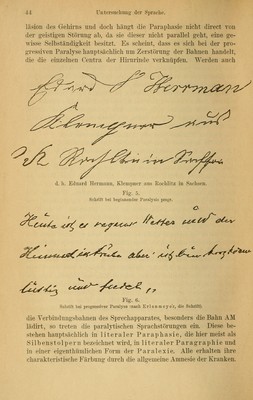 44 Untersuchung der Sprache.
läsion des Gehirns und doch hängt die Paraphasie nicht direct von
der geistigen Störung ab, da sie dieser nicht parallel geht, eine ge-
wisse Selbständigkeit besitzt. Es scheint, dass es sich bei der pro-
gressiven Paralyse hauptsächlich um Zerstörung der Bahnen handelt,
die die einzelnen Centra der Hirnrinde verknüpfen. Werden auch
Eduard Herrman
Klempner aus
Rochlin in
d. h. Eduard Hermann, Klempner aus Rochlitz in Sachsen.
Fig. 5.
Schrift bei beginnender Paralysis progr.
Heute ist es Wetter und der
Himmel ist aber ich bin
lustig und
Fig. 6.
Schrift bei progressiver Paralyse (nach Erlenmeyer, die Schrift).
die Verbindungsbahnen des Sprechapparates, besonders die Bahn AM
lädirt, so treten die paralytischen Sprachstörungen ein. Diese be-
stehen hauptsächlich in literaler Paraphasie, die hier meist als
Silbenstolpern bezeichnet wird, in literaler Paragraphie und
in einer eigenthümlichen Form der Paralexie. Alle erhalten ihre
charakteristische Färbung durch die allgemeine Amnesie der Kranken.